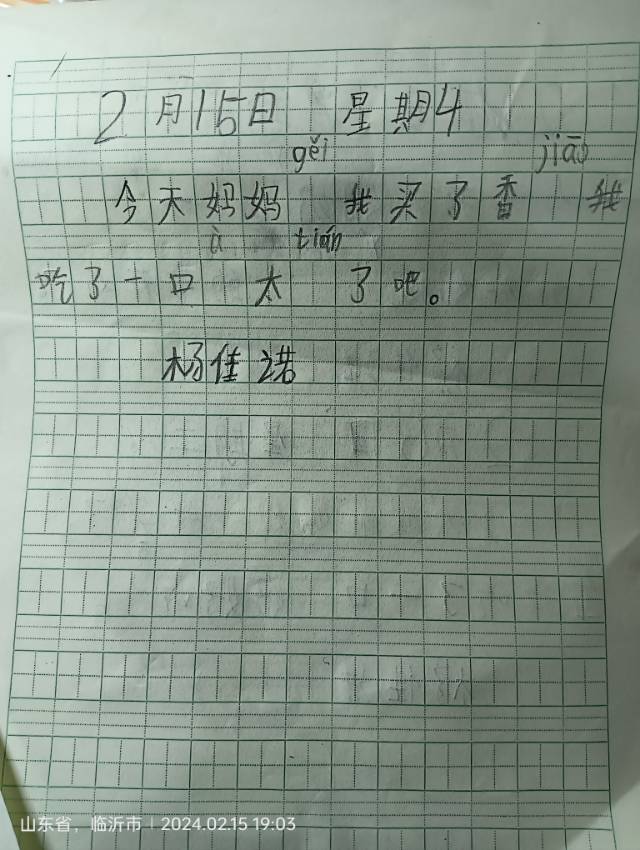 2月15日 星期4
gěi jiāo
今天妈妈 我买了香 我
à tián
吃了一口 太 了吧。
杨佳诺
山东省，临沂市 | 2024.02.15 19:03